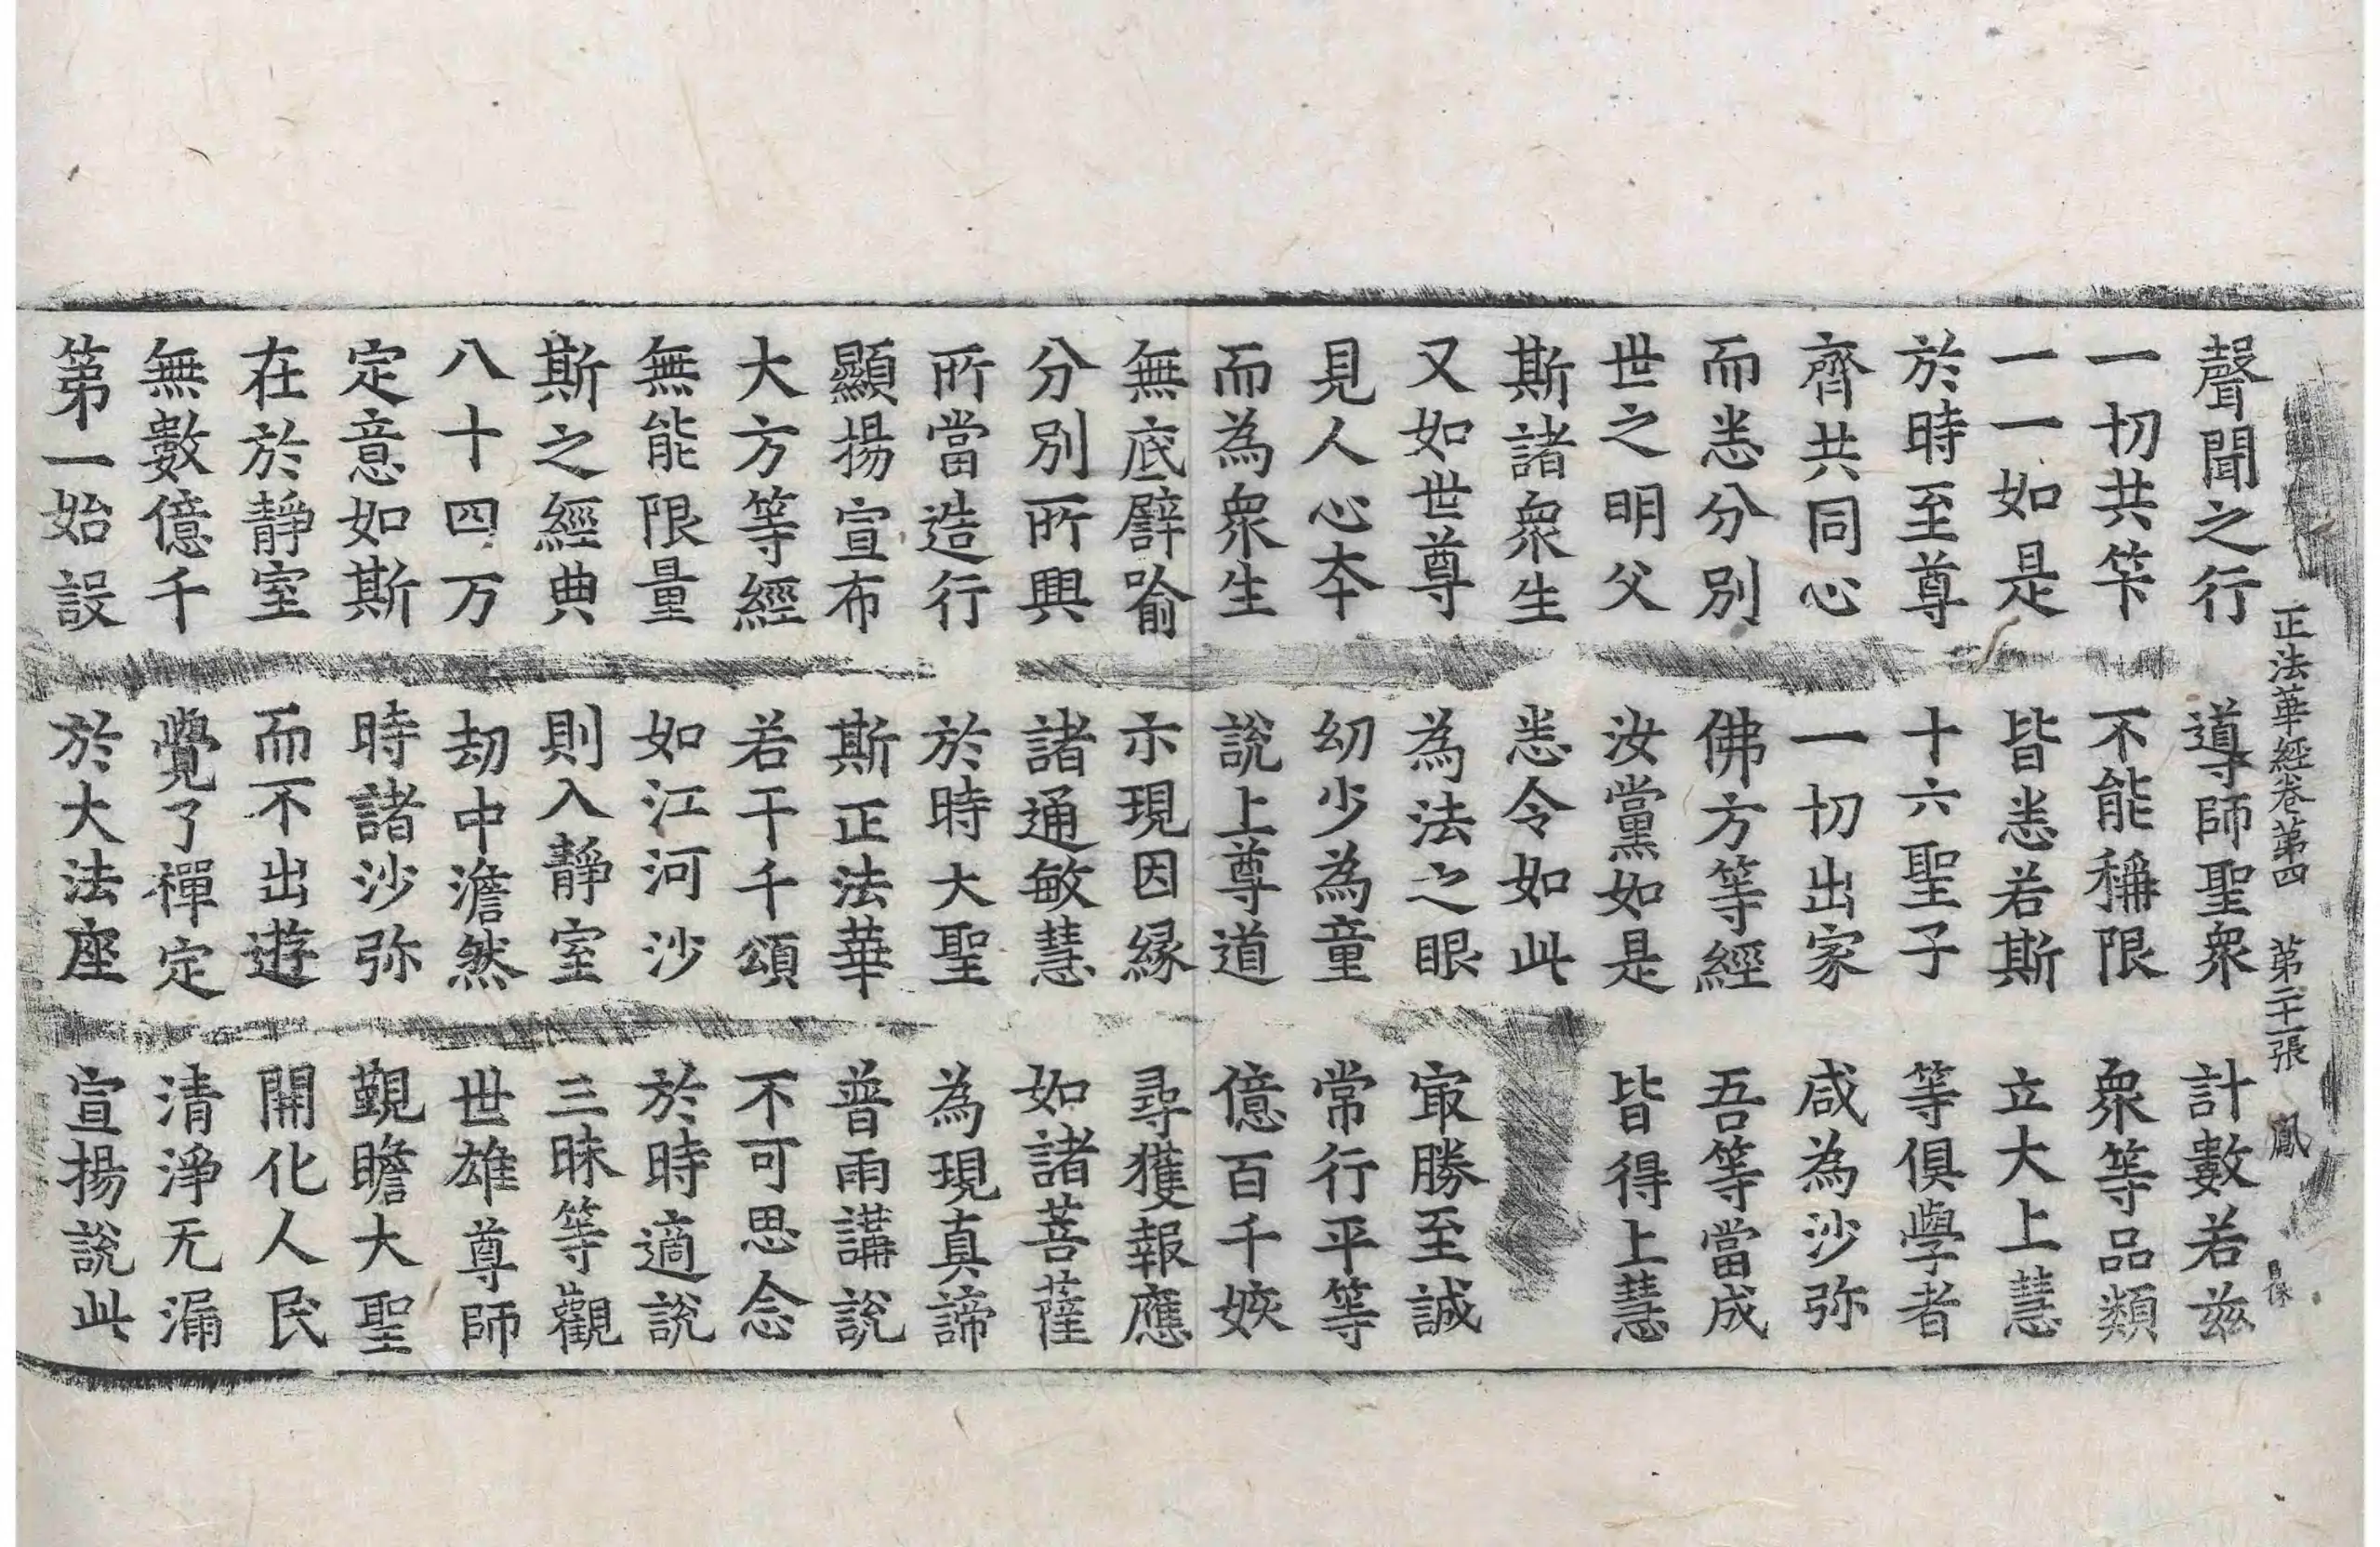 正法華經卷第四 第二十一張 鳳
聲聞之行 導師聖衆 計數若玆
一切共笇 不能稱限 衆等品類
一一如是 皆悉若斯 立大上慧
於時至尊 十六聖子 等俱學者
齊共同心 一切出家 咸為沙弥
而悉分別 佛方等經 吾等當成
世之明父 汝黨如是 皆得上慧
斯諸衆生 悉令如此
又如世尊 為法之眼 㝡勝至誠
見人心夲 幼少為童 常行平等
而為衆生 說上尊道 億百千姟
無底譬喻 示現因縁 尋獲報應
分別所興 諸通敏慧 如諸菩薩
所當造行 於時大聖 為現真諦
顯揚宣布 斯正法華 普雨講說
大方等經 若干千頌 不可思念
無能限量 如江河沙 於時適說
斯之經典 則入靜室 三昧等觀
八十四万 劫中澹然 世雄尊師
定意如斯 時諸沙弥 覲瞻大聖
在於靜室 而不出遊 開化人民
無數億千 覺了禪定 清淨无漏
第一始設 於大法座 宣揚說此